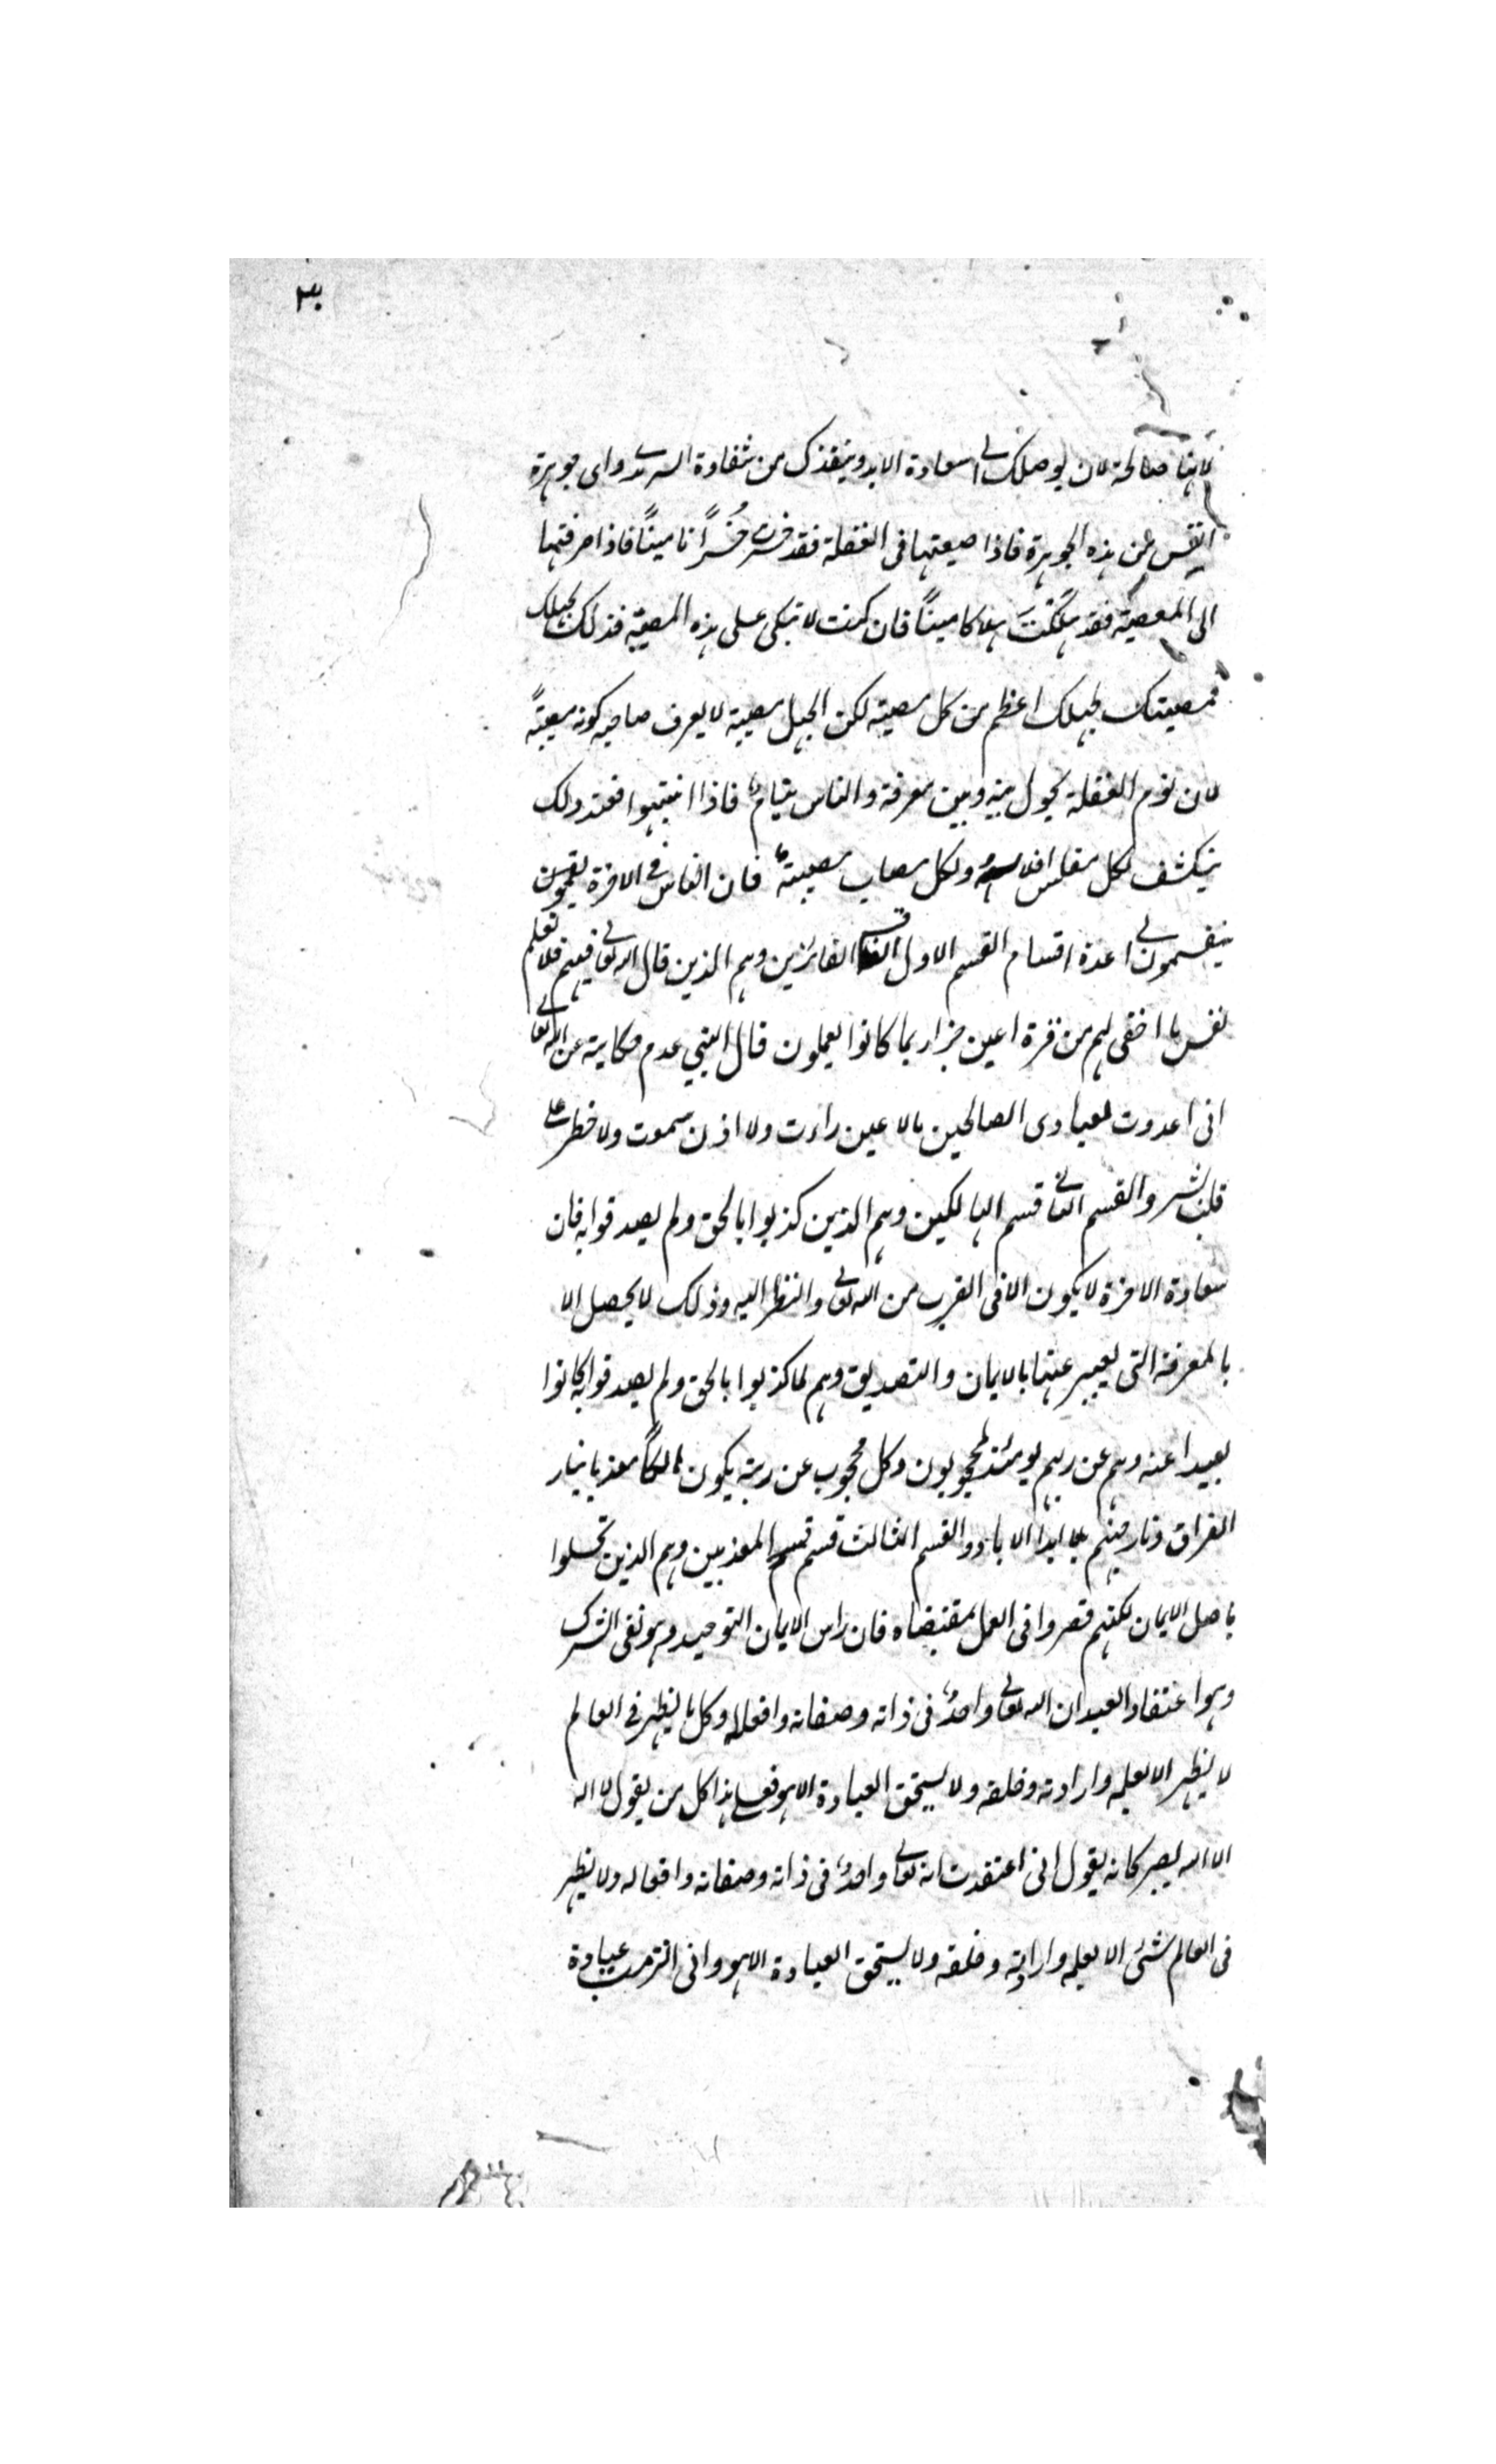 ٣
لانها صالحة لان يوصلك الى سعادة الابد وينقذك من شقاوة السرمد واى جوهرة
انفس من هذه الجوهرة فاذا ضيعتها فى الغفلة فقد خسرت خُسرًانا مبينًا فاذا صرفتها
الى المعصية فقد هلكتَ هلاكا مبينًا فان كنت لا تبكى على هذه المصيبة فذلك لجهلك
فمصيبتك لجهلك اعظم من كل مصيبة لكن الجهل مصيبة لا يعرف صاحبه كونه مصيبةً
لان نوم الغفلة يحول بينه وبين معرفة والناس نيام فاذا انتبهوا فعند ذلك
ينكشف لكل مفلس افلاسه ولكل مصاب مصيبتهُ فان الناس فى الاخرة
ينقسمون الى عدة اقسام القسم الاول قسم الفائزين وهم الذين قال الله تعالى فيهم فلا تعلم
نفس ما اخفى لهم من قرة اعين جزاء بما كانوا يعملون قال النبي عم حكاية عن الله تعالى
انى اعددت لعبادى الصالحين مالا عين راءت ولا اذن سمعت ولا خطر على
قلب بشر والقسم الثانى قسم الهالكين وهم الذين كذبوا بالحق ولم يصدقوا به فان
سعادة الاخرة لا يكون الا فى القرب من الله تعالى والنظر اليه وذلك لا يحصل الا
بالمعرفة التى يعبر عنها بالايمان والتصديق وهم لما كذبوا بالحق ولم يصدقوا به كانوا
بعيدا عنه وهم عن ربهم يومئذ لمحجوبون وكل محجوب عن ربه يكون معذبا بنار
الفراق ونار جهنم ابدا الاباد والقسم الثالث قسم قسم المعذبين وهم الذين تحملوا
باصل الايمان لكنهم قصروا فى العمل بمقتضاه فان راس الايمان التوحيد وهو نفى الشرك
وهو اعتقاد العبد ان الله تعالى واحدٌ فى ذاته وصفاته وافعاله وكل ما يظهر فى العالم
لا يظهر الا بعلمه وارادته وخلقه ولا يستحق العبادة الا هو فعلى هذا كل من يقول لا اله
الا الله يصير كانه يقول انى اعتقدت انه تعالى واحدٌ فى ذاته وصفاته وافعاله ولا يظهر
فى العالم شئ الا بعلمه وارادته وخلقه ولا يستحق العبادة الا هو وانى التزمت عبادة